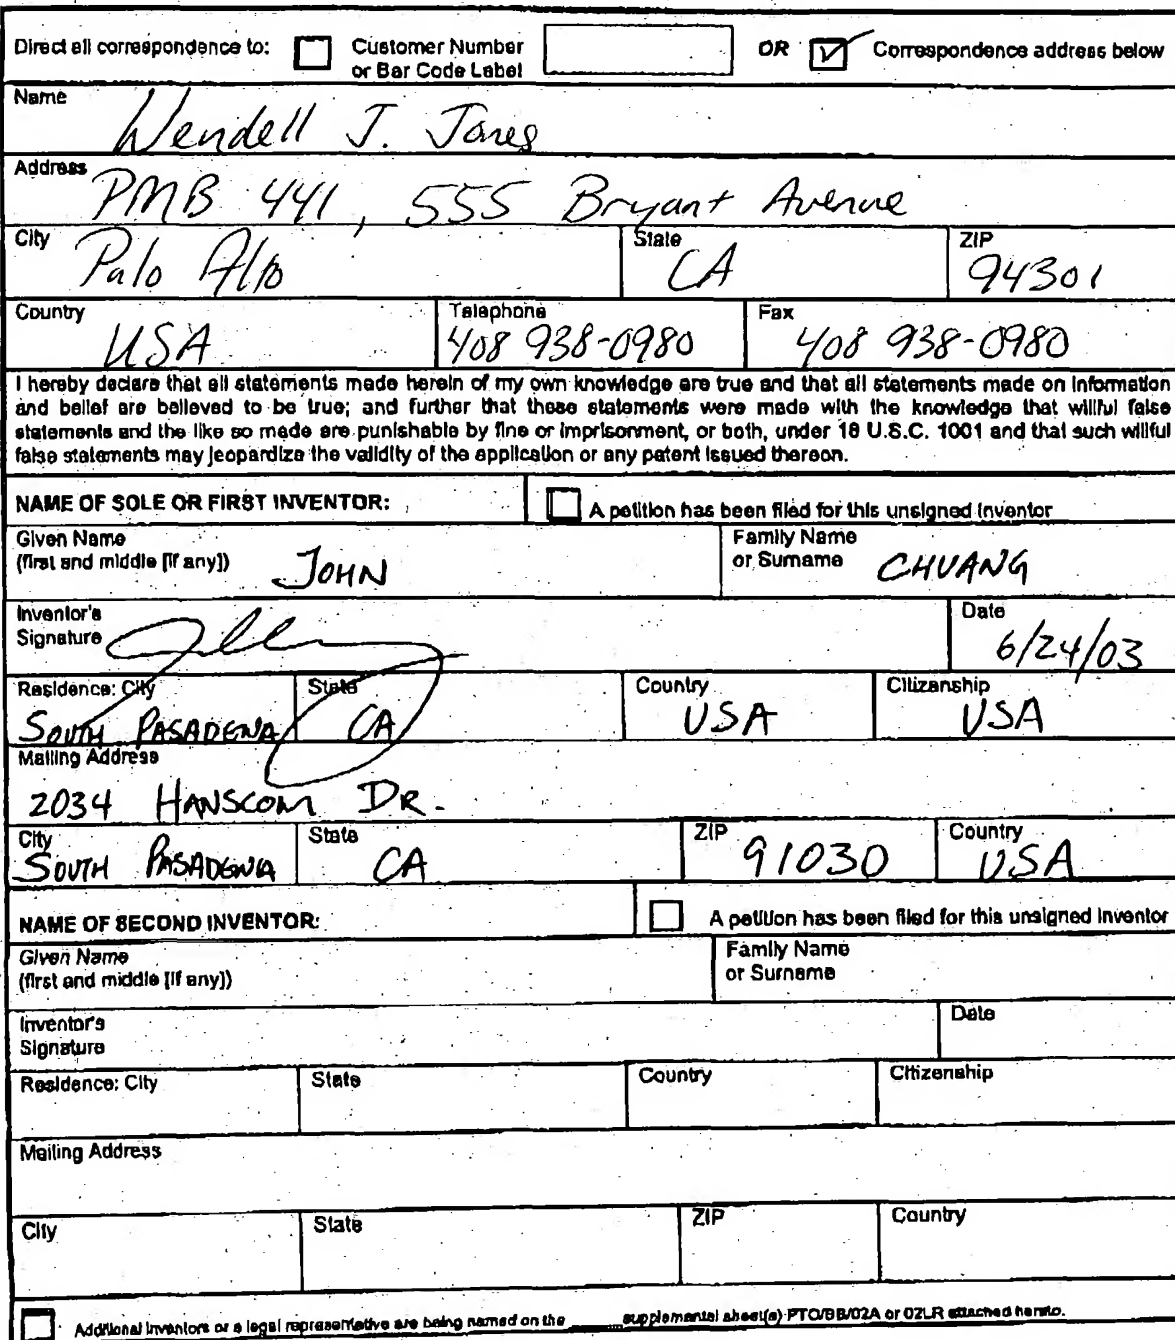 Direct all correspondence to: Customer Number or Bar Code Label OR Correspondence address below
Name
Wendell J. Jones
Address
PMB 441, 555 Bryant Avenue
City State ZIP
Palo Alto CA 94301
Country Telephone Fax
USA 408 938-0980 408 938-0980
I hereby declare that all statements made herein of my own knowledge are true and that all statements made on information
and belief are believed to be true; and further that these statements were made with the knowledge that willful false
statements and the like so made are punishable by fine or imprisonment, or both, under 18 U.S.C. 1001 and that such willful
false statements may jeopardize the validity of the application or any patent issued thereon.
NAME OF SOLE OR FIRST INVENTOR: A petition has been filed for this unsigned inventor
Given Name Family Name
(first and middle [if any]) JOHN or Surname CHUANG
Inventor's Date
Signature 6/24/03
Residence: City State Country Citizenship
SOUTH PASADENA CA USA USA
Mailing Address
2034 HANSCOM DR.
City State ZIP Country
SOUTH PASADENA CA 91030 USA
NAME OF SECOND INVENTOR: A petition has been filed for this unsigned inventor
Given Name Family Name
(first and middle [if any]) or Surname
Inventor's Date
Signature
Residence: City State Country Citizenship
Mailing Address
City State ZIP Country
Additional inventors or a legal representative are being named on the ____ supplemental sheet(s) PTO/SB/02A or 02LR attached hereto.